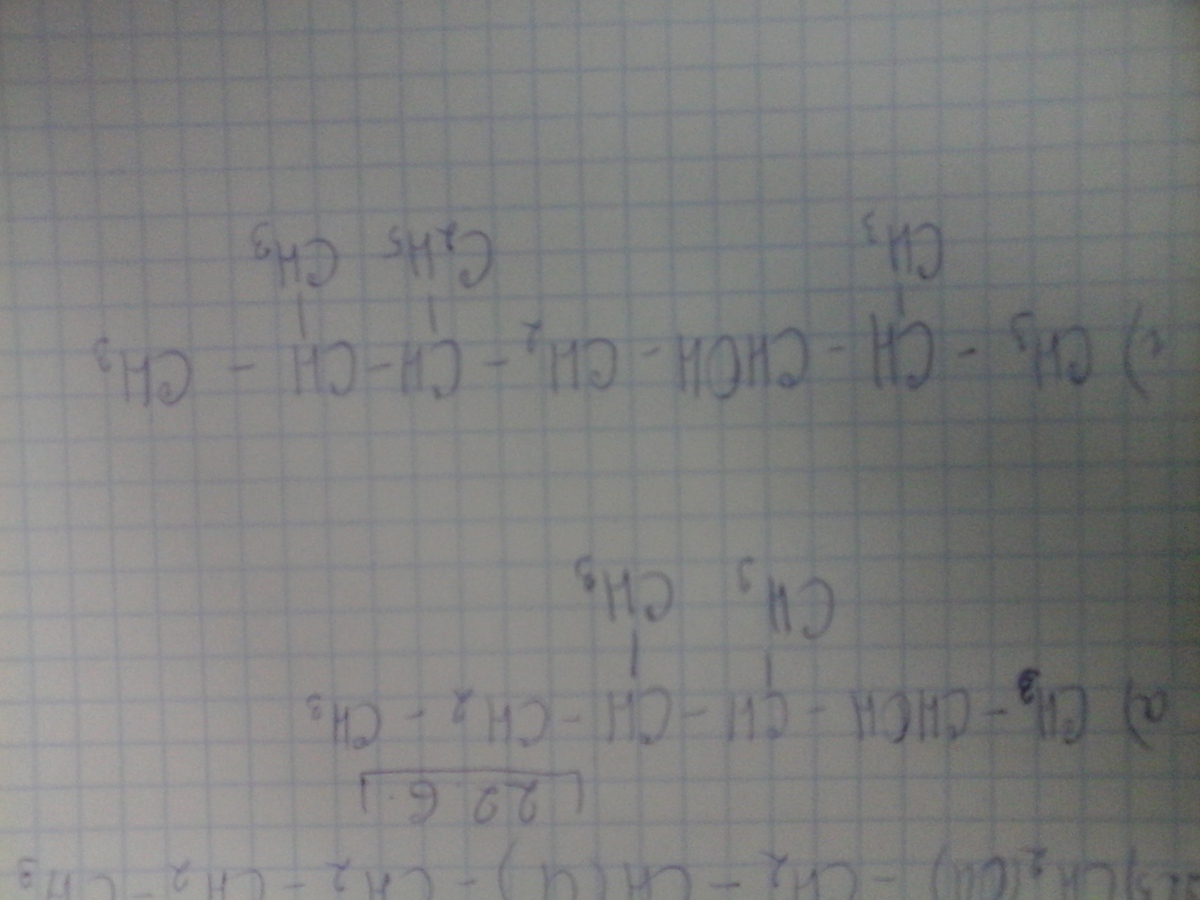 CH₂(Cl) – CH₂ – CH(Cl) – CH₂ – CH₂ – CH₃
22 6.
a) CH₃ – CHOH – CH – CH – CH₂ – CH₃
CH₃ CH₃
c) CH₃ – CH – CHOH – CH₂ – CH – CH – CH₃
CH₃ C₂H₅ CH₃